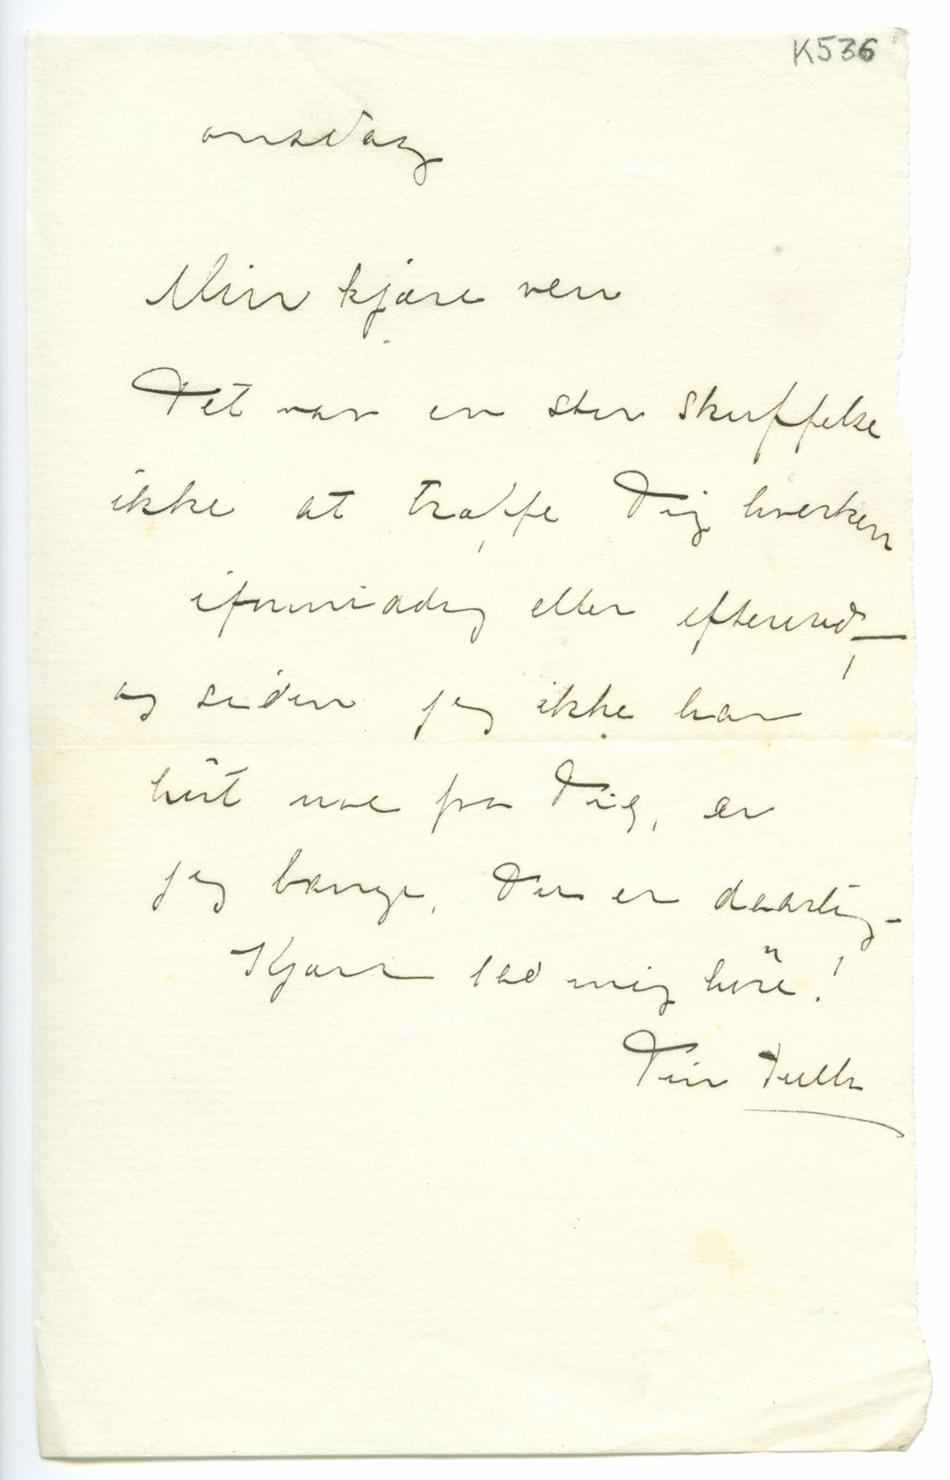 K536
onsdag
Min kjære ven
Det var en stor skuffelse
ikke at træffe Dig hverken
iformiddag eller eftermid–
og siden jeg ikke har
hört noe fra Dig, er
jeg bange, Du er daarlig –
Kjære lad mig höre!
Din Tulla